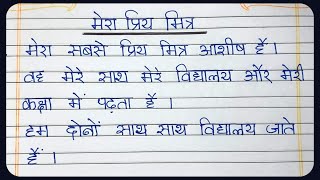 मेरा प्रिय मित्र
मेरा सबसे प्रिय मित्र आशीष है ।
वह मेरे साथ मेरे विद्यालय और मेरी
कक्षा में पढ़ता है ।
हम दोनों साथ साथ विद्यालय जाते
हैं ।